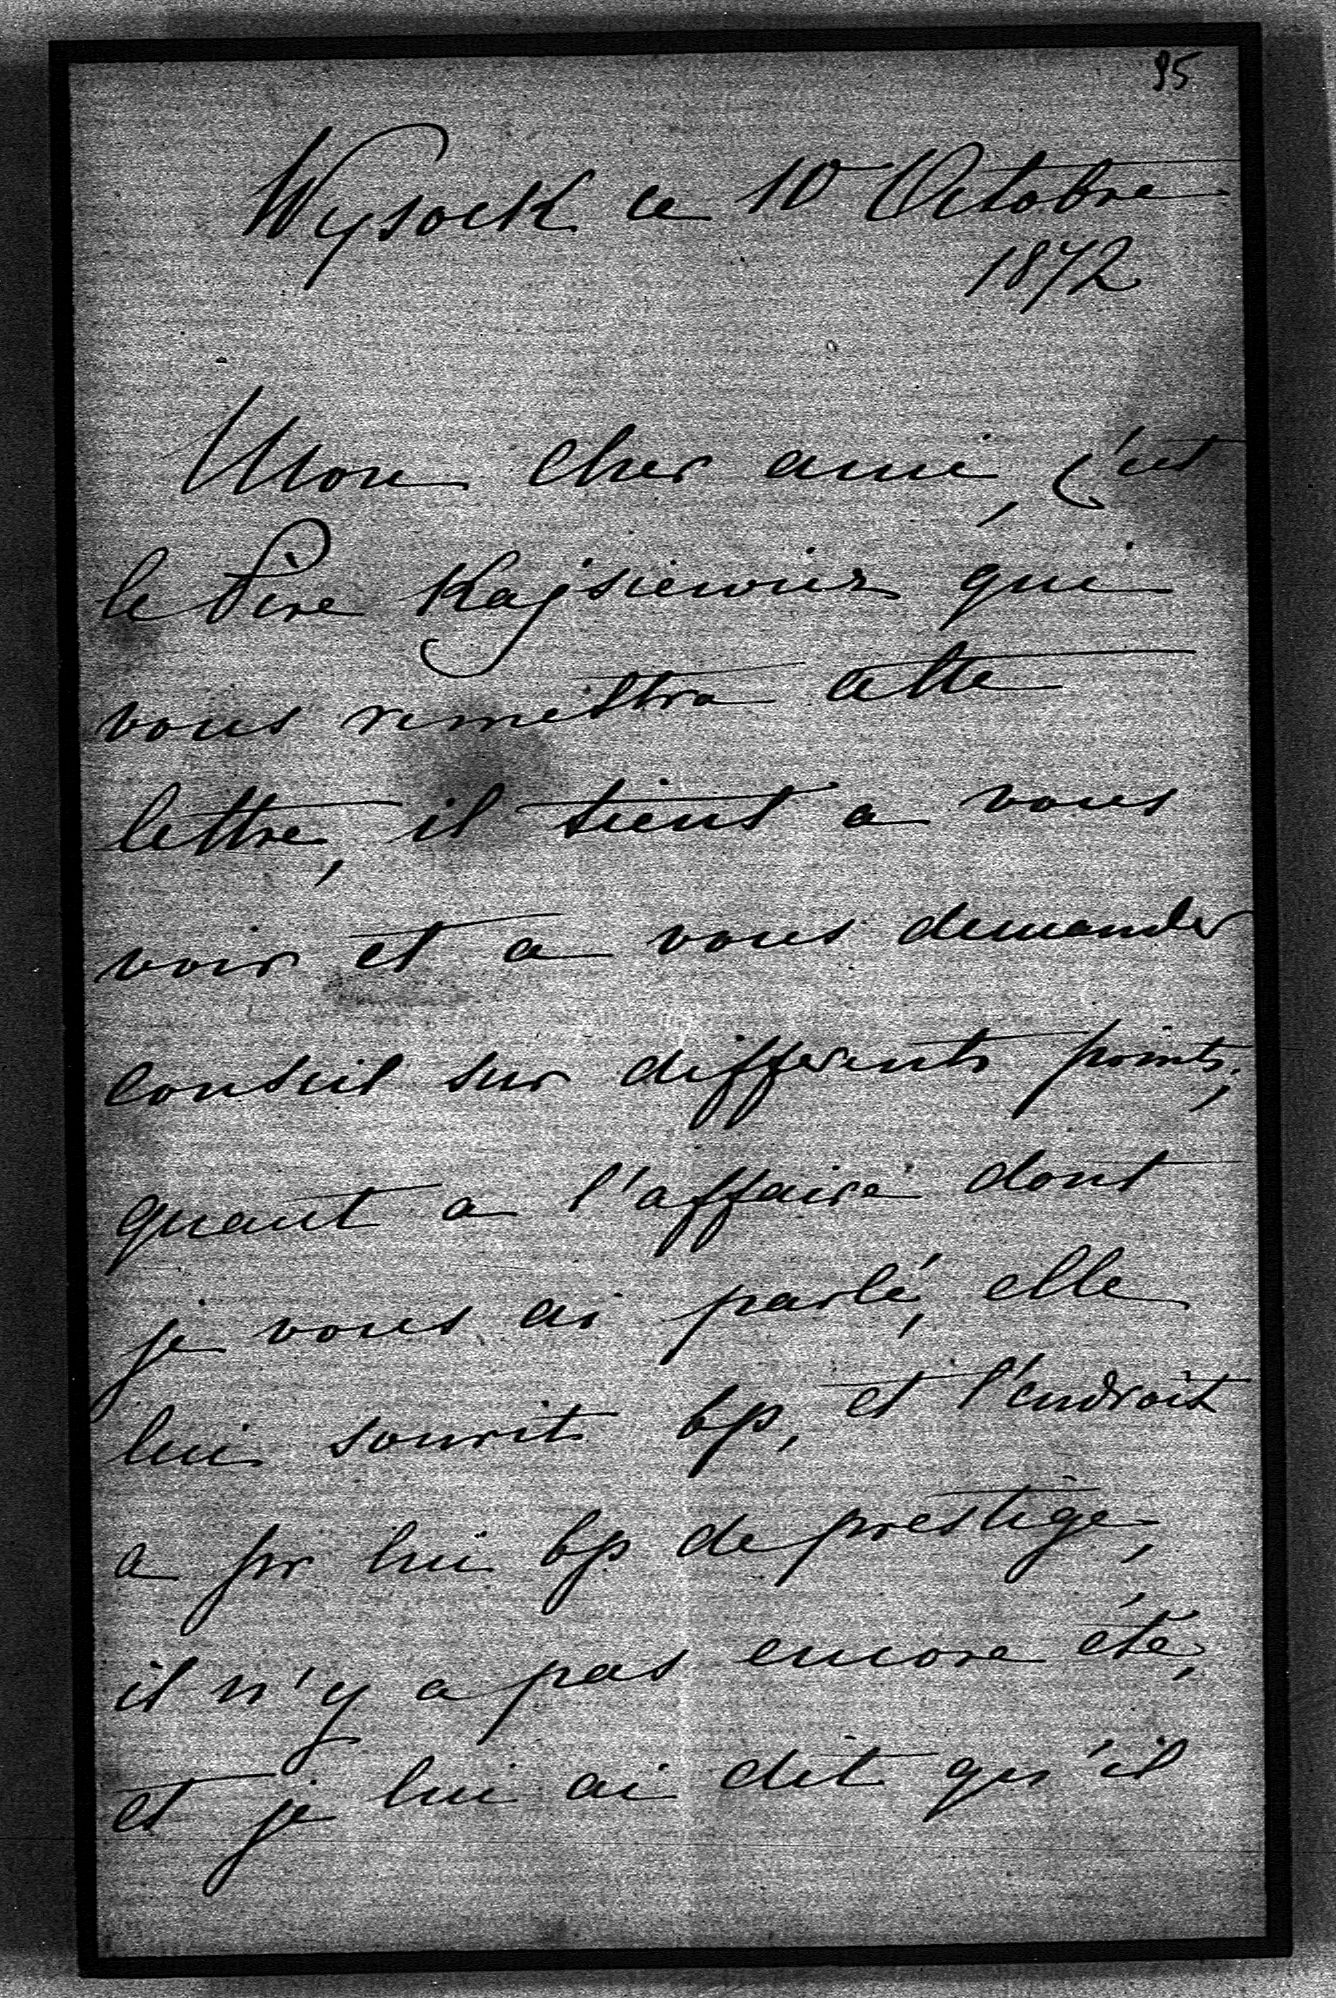 95
Wysock ce 10 Octobre
1872
Mon cher ami, c'est
le Père Kajsiewicz qui
vous remettra cette
lettre, il tient a vous
voir et a vous demander
conseil sur differents points,
quant a l'affaire dont
je vous ai parlé, elle
lui sourit bp, et l'endroit
a pr lui bp de prestige,
il n'y a pas encore été,
et je lui ai dit qu'il